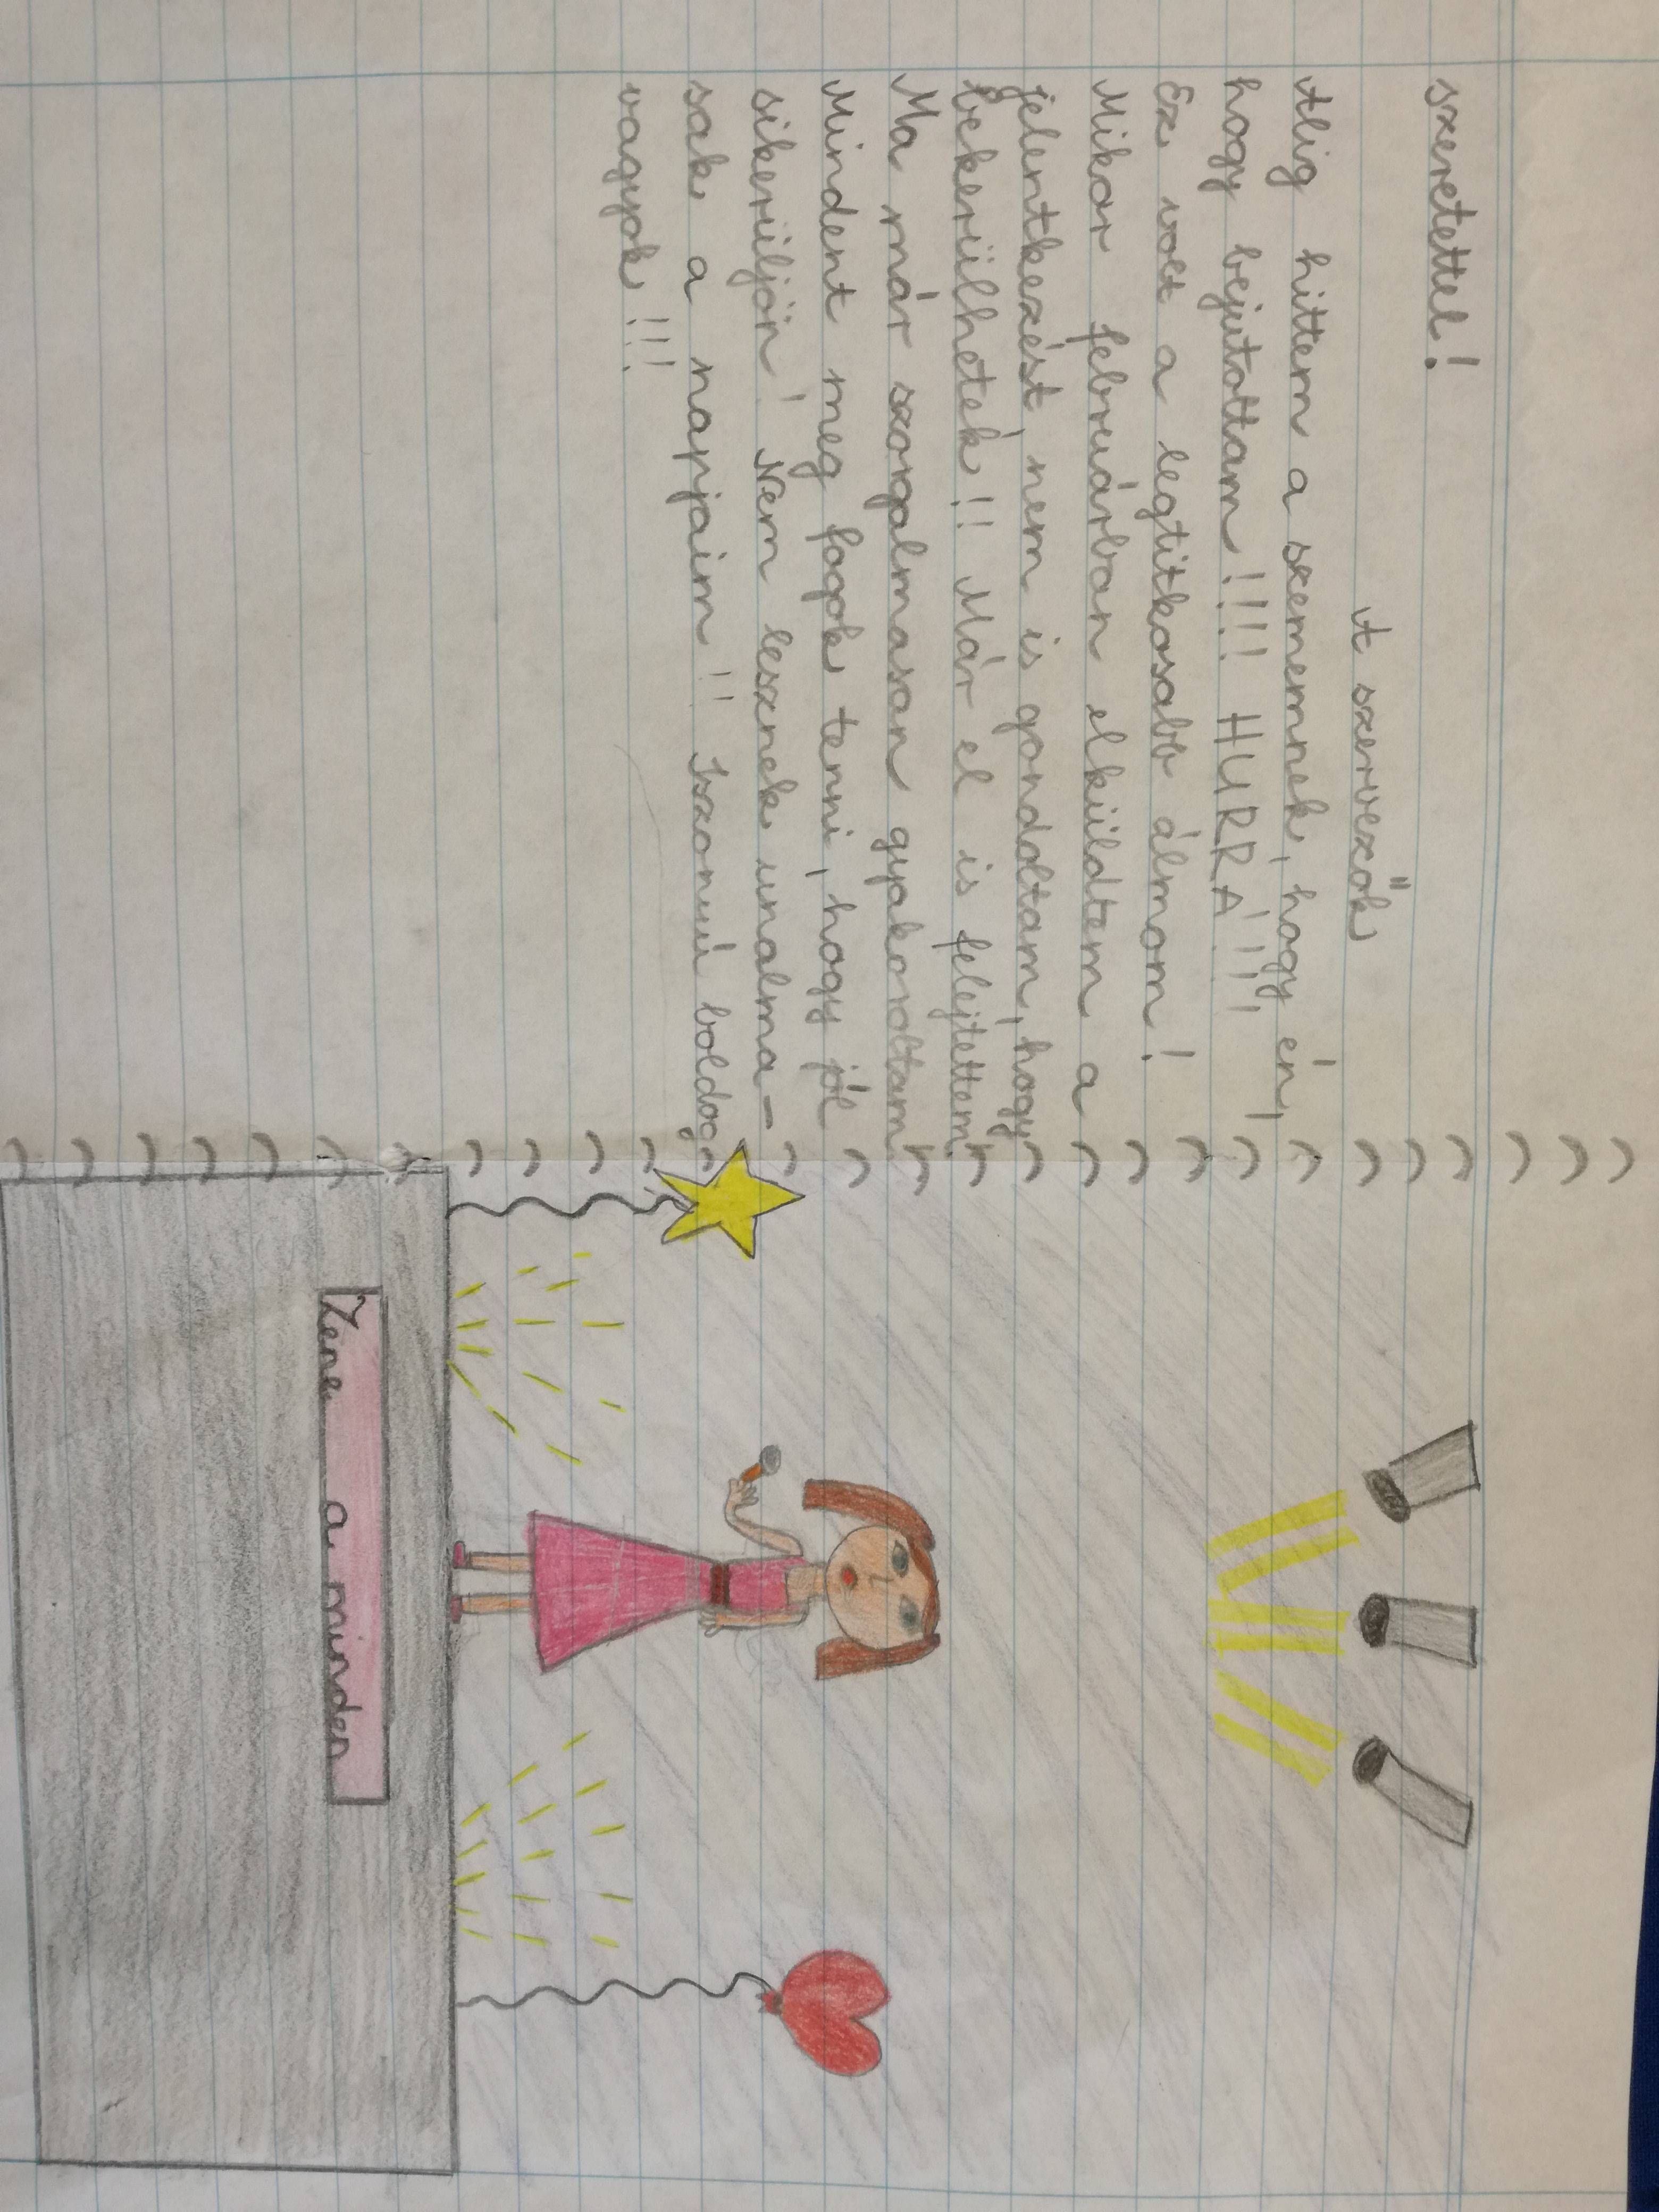 szeretettel!
A szervezők
Alig hittem a szememnek, hogy én,
hogy bejutottam!!!! HURRÁ!!!!
Ez volt a legtitkosabb álmom!
Mikor februárban elküldtem a
jelentkezést, nem is gondoltam, hogy
bekerülhetek!! Már el is felejtettem.
Ma már szorgalmasan gyakoroltam.
Mindent meg fogok tenni, hogy jól
sikerüljön! Nem lesznek unalma-
sak a napjaim!! Iszonyú boldog
vagyok!!!
Zene a minden